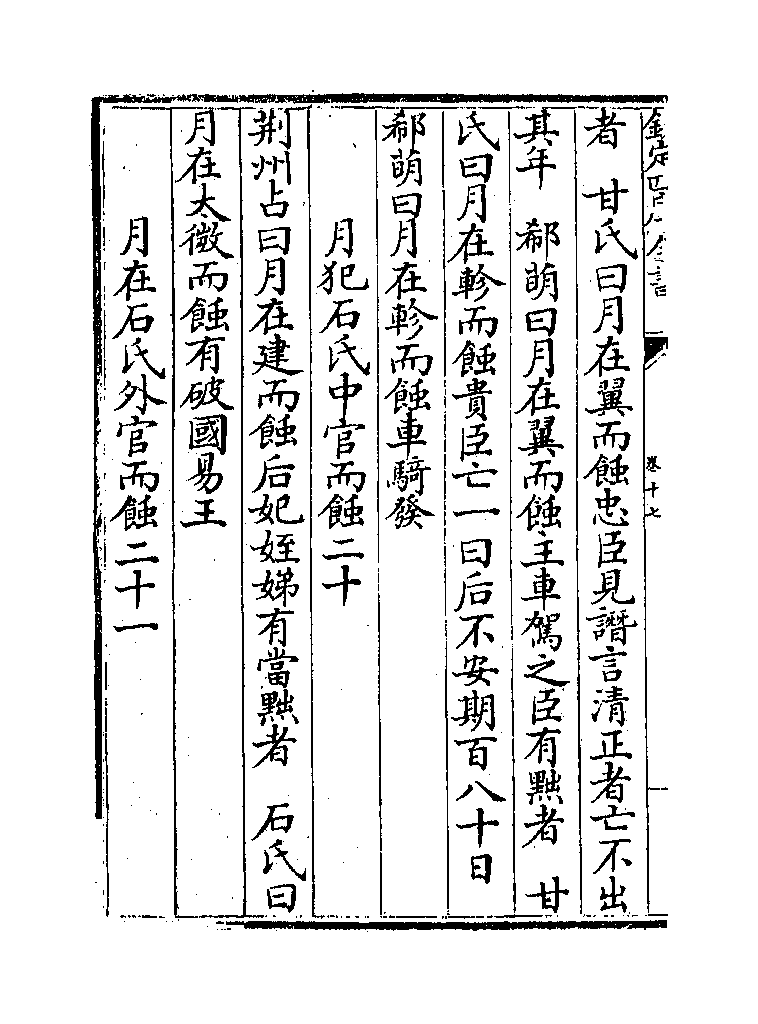 欽定四庫全書
卷十七
者　甘氏曰月在翼而蝕忠臣見譖言清正者亡不出
其年　郗萌曰月在翼而蝕主車駕之臣有黜者　甘
氏曰月在軫而蝕貴臣亡一曰后不安期百八十日
郗萌曰月在軫而蝕車騎發
月犯石氏中官而蝕二十
荆州占曰月在建而蝕后妃姪娣有當黜者　石氏曰
月在太微而蝕有破國易王
月在石氏外官而蝕二十一